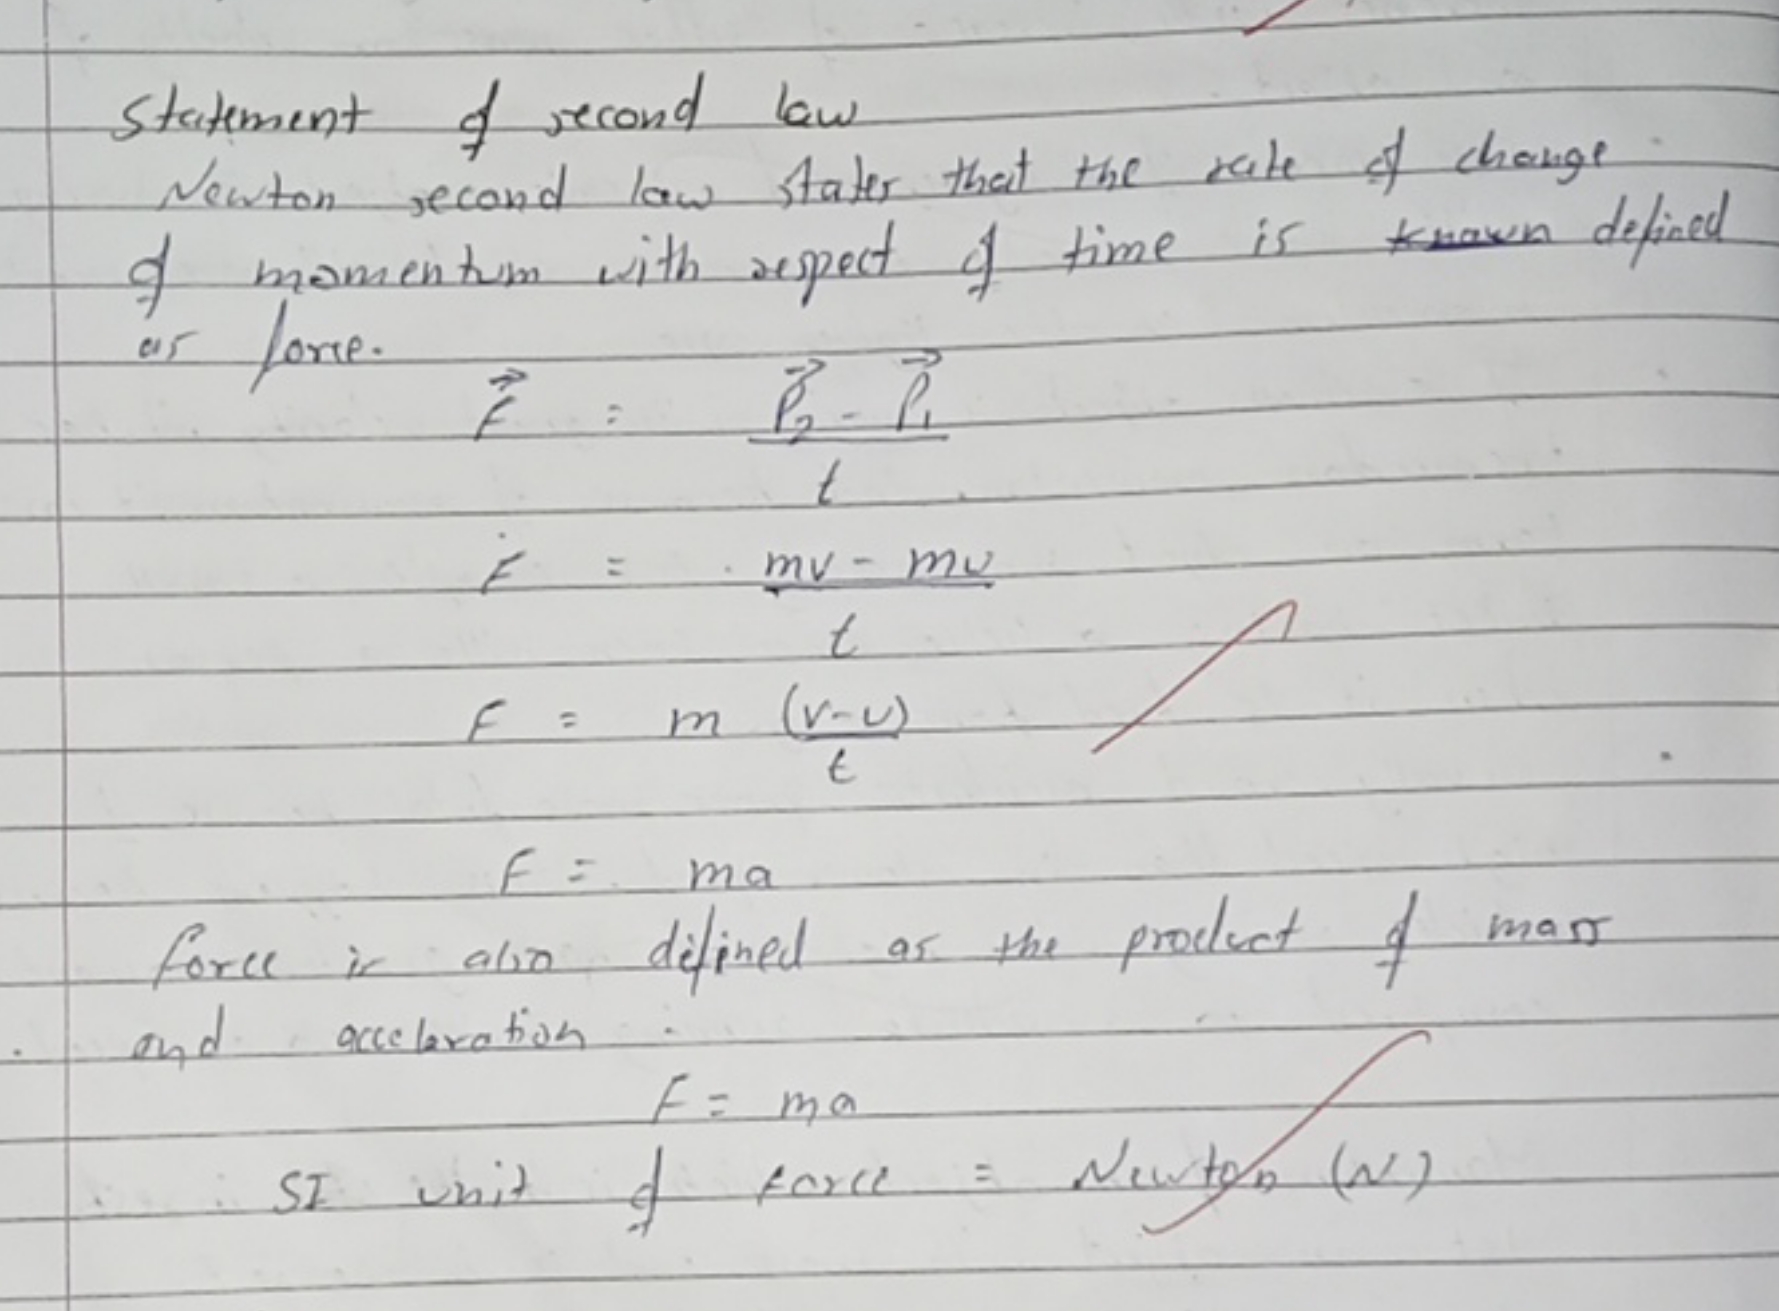 Statement of second law
Newton second law states that the rate of change
of momentum with respect of time is known defined
as force.
F⃗ = P⃗₂ - P⃗₁
t
F = mv - mu
t
F = m (v-u)
t
F = ma
force is also difined as the product of mass
and accelaration
F = ma
SI unit of force = Newton (N)